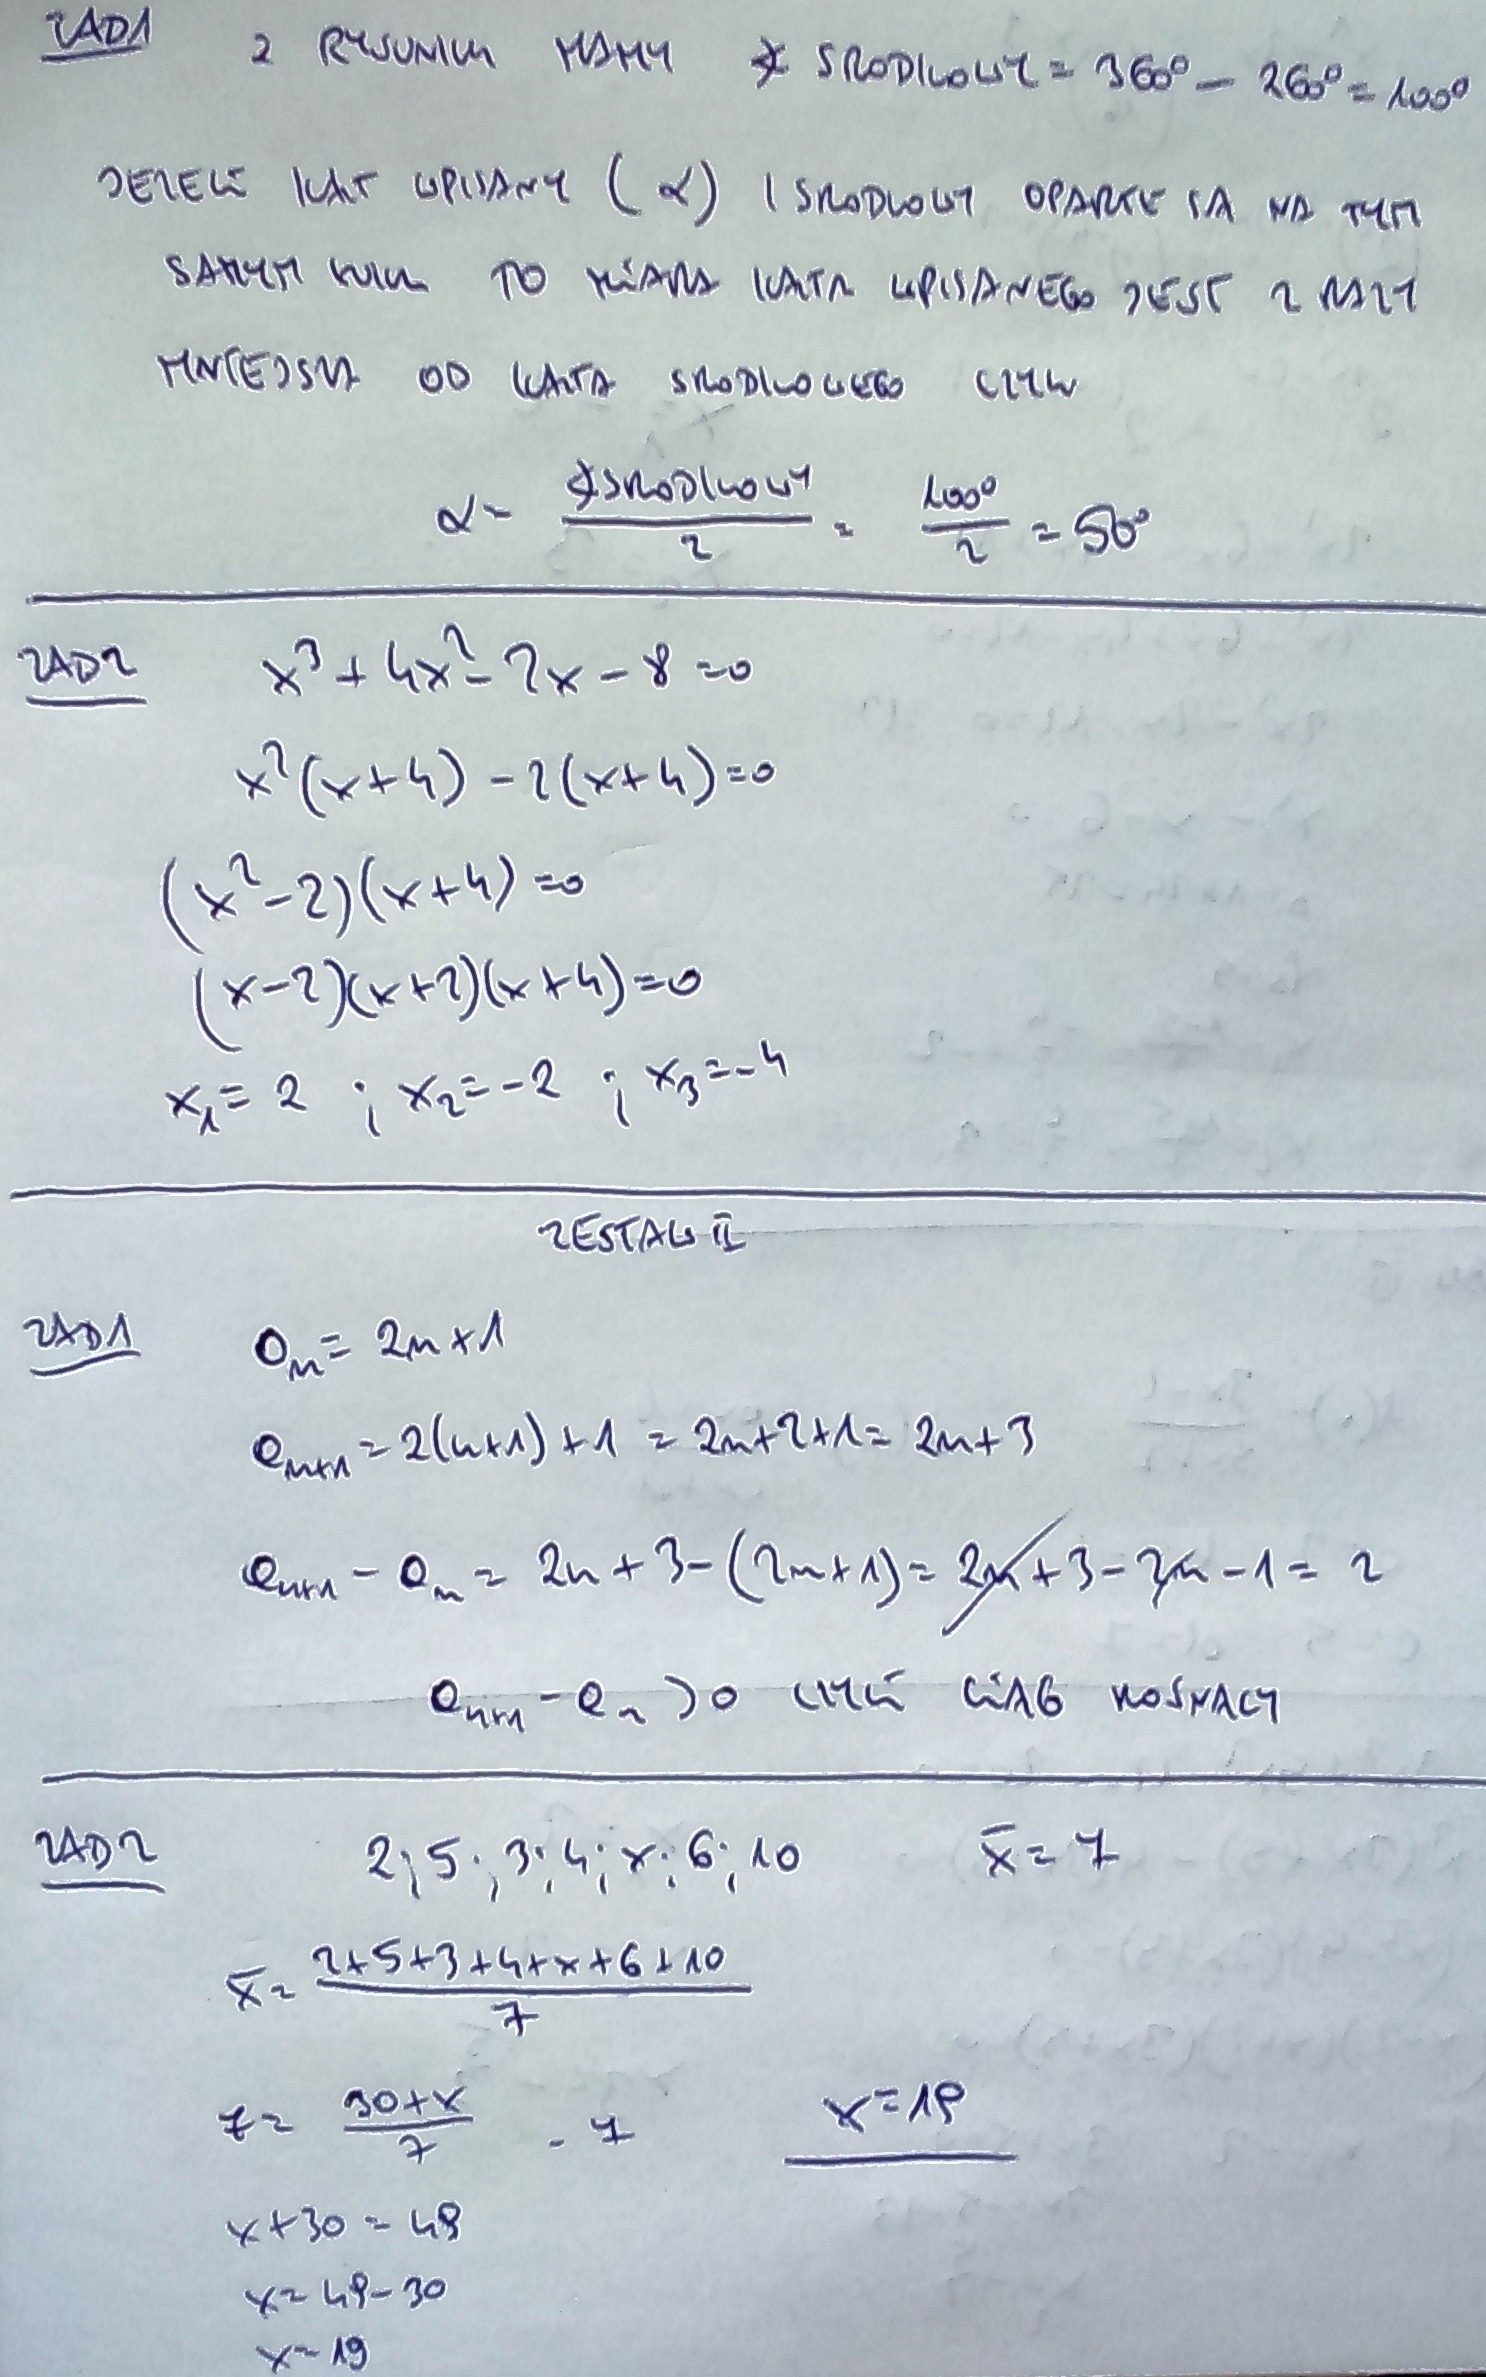 ZAD1 Z RYSUNKU MAMY ∡ SRODKOWY = 360° - 260° = 100°
JEZELI KAT WPISANY (α) I SRODKOWY OPARTE SA NA TYM
SAMYM LUKU TO MIARA KATA WPISANEGO JEST 2 RAZY
MNIEJSZA OD KATA SRODKOWEGO CZYLI
α = ∡SRODKOWY / 2 = 100° / 2 = 50°
ZAD2 x³ + 4x² - 2x - 8 = 0
x²(x+4) - 2(x+4) = 0
(x² - 2)(x+4) = 0
(x-2)(x+2)(x+4) = 0
x₁ = 2 ; x₂ = -2 ; x₃ = -4
ZESTAW II
ZAD1 aₙ = 2n+1
aₙ₊₁ = 2(n+1)+1 = 2n+2+1 = 2n+3
aₙ₊₁ - aₙ = 2n+3-(2n+1) = 2n+3-2n-1 = 2
aₙ₊₁ - aₙ > 0 CZYLI CIAG ROSNACY
ZAD2 2; 5; 3; 4; x; 6; 10 x̄ = 7
x̄ = 2+5+3+4+x+6+10 / 7
7 = 30+x / 7 · 7 x = 19
x+30 = 49
x = 49-30
x = 19